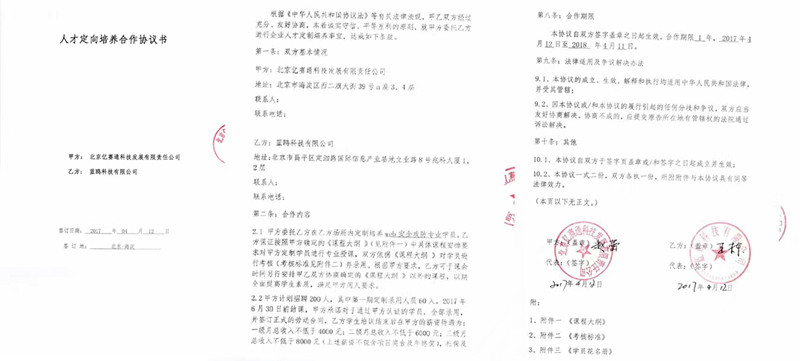 人才定向培养合作协议书
甲方： 北京亿赛通科技发展有限责任公司
乙方： 蓝鸥科技有限公司
签订日期： 2017 年 04 月 12 日
签 订 地： 北京·海淀
根据《中华人民共和国协议法》等有关法律法规，甲乙双方经过
充分、友好协商，本着诚实守信、平等互利的原则，就甲方委托乙方
进行企业人才定制培养事宜，达成如下条款。
第一条：双方基本情况
甲方：北京亿赛通科技发展有限责任公司
地址：北京市海淀区西二旗大街 39 号 a 座 3、4 层
联系人：
联系电话：
乙方：蓝鸥科技有限公司
地址：北京市昌平区定泗路国际信息产业基地立业路 8 号兆科大厦 1、
2 层
联系人：
联系电话：
第二条：合作内容
2.1 甲方委托乙方在乙方场所内定制培养 web 安全攻防专业学员。乙
方保证按照甲方确定的《课程大纲》（见附件一）中具体课程安排要
求对甲方定制学员进行专业授课。双方依据《课程大纲》对学员统
行考核（考核标准见附件二）并录用。根据甲方要求，乙方可于课余
时间另行安排甲乙双方协商确定的《课程大纲》以外的课程，以期
全面提高学生素质，满足甲方用人要求。
2.2 甲方计划招聘 200 人，其中第一期定制录用人员 60 人，2017 年
6 月 30 日前结课，甲方承诺对于通过甲方认证的学员，全部录用，
并签订正式的劳动合同，乙方学生培训结束后在甲方的薪资待遇为：
一级月总收入不低于 4000 元；二级月总收入不低于 6000 元；三级月
总收入不低于 8000 元（上述薪资不包含项目奖金及年终奖），社保是
第八条：合作期限
本协议自双方签字盖章之日起生效。合作期限 1 年。2017 年 4
月 12 日至 2018 年 4 月 11 日。
第九条：法律适用及争议解决办法
9.1、本协议的成立、生效、解释和执行均适用中华人民共和国法律，
并受其管辖；
9.2、因本协议或/和本协议的履行引起的任何分歧和争议，双方应当
友好协商解决。协商不成的，应提交原告所在地有管辖权的法院通过
诉讼解决。
第十条：其他
10.1、本协议自双方于签字页盖章或/和签字之日起成立并生效；
10.2、本协议一式二份，双方各执一份，所附附件与本协议具有同等
法律效力。
（本页以下无正文。）
甲方：（盖章） 乙方：（盖章）
代表：（签字） 代表：（签字）
2017年4月12日 2017年4月12日
附：
1、附件一 《课程大纲》
2、附件二 《考核标准》
3、附件三 《学员花名册》